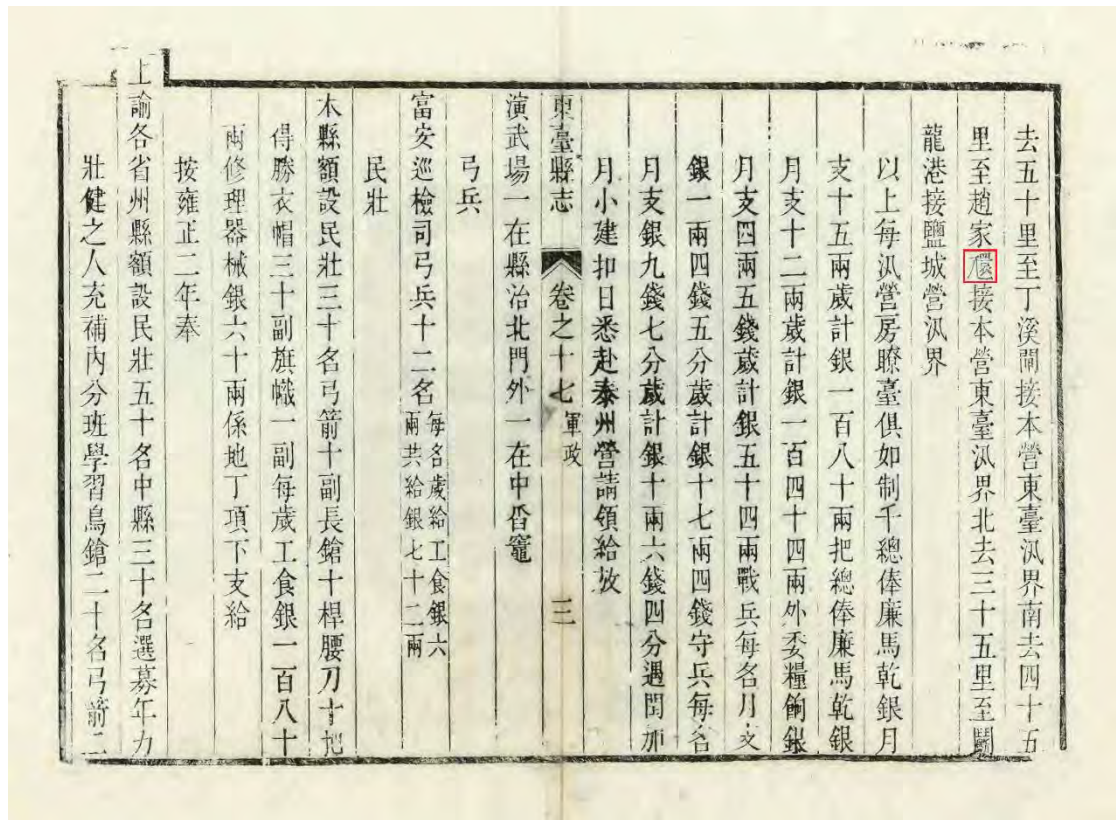 去五十里至丁溪閘接本營東臺汛界南去四十五
里至趙家接本營東臺汛界北去三十五里至鬬
龍港接鹽城營汛界
以上每汛營房瞭臺俱如制千總俸廉馬乾銀月
支十五兩歲計銀一百八十兩把總俸廉馬乾銀
月支十二兩歲計銀一百四十四兩外委糧餉銀
月支四兩五錢歲計銀五十四兩戰兵每名月支
銀一兩四錢五分歲計銀十七兩四錢守兵每名
月支銀九錢七分歲計銀十兩六錢四分遇閏加
月小建扣日悉赴泰州營請領給放
東臺縣志 卷之十七 軍政 三
演武場一在縣治北門外一在中昝竈
弓兵
富安巡檢司弓兵十二名每名歲給工食銀六
兩共給銀七十二兩
民壯
本縣額設民壯三十名弓箭十副長鎗十桿腰刀十把
得勝衣帽三十副旗幟一副每歲工食銀一百八十
兩修理器械銀六十兩係地丁項下支給
按雍正二年奉
上諭各省州縣額設民壯五十名中縣三十名選募年力
壯健之人充補內分班學習鳥鎗二十名弓箭二